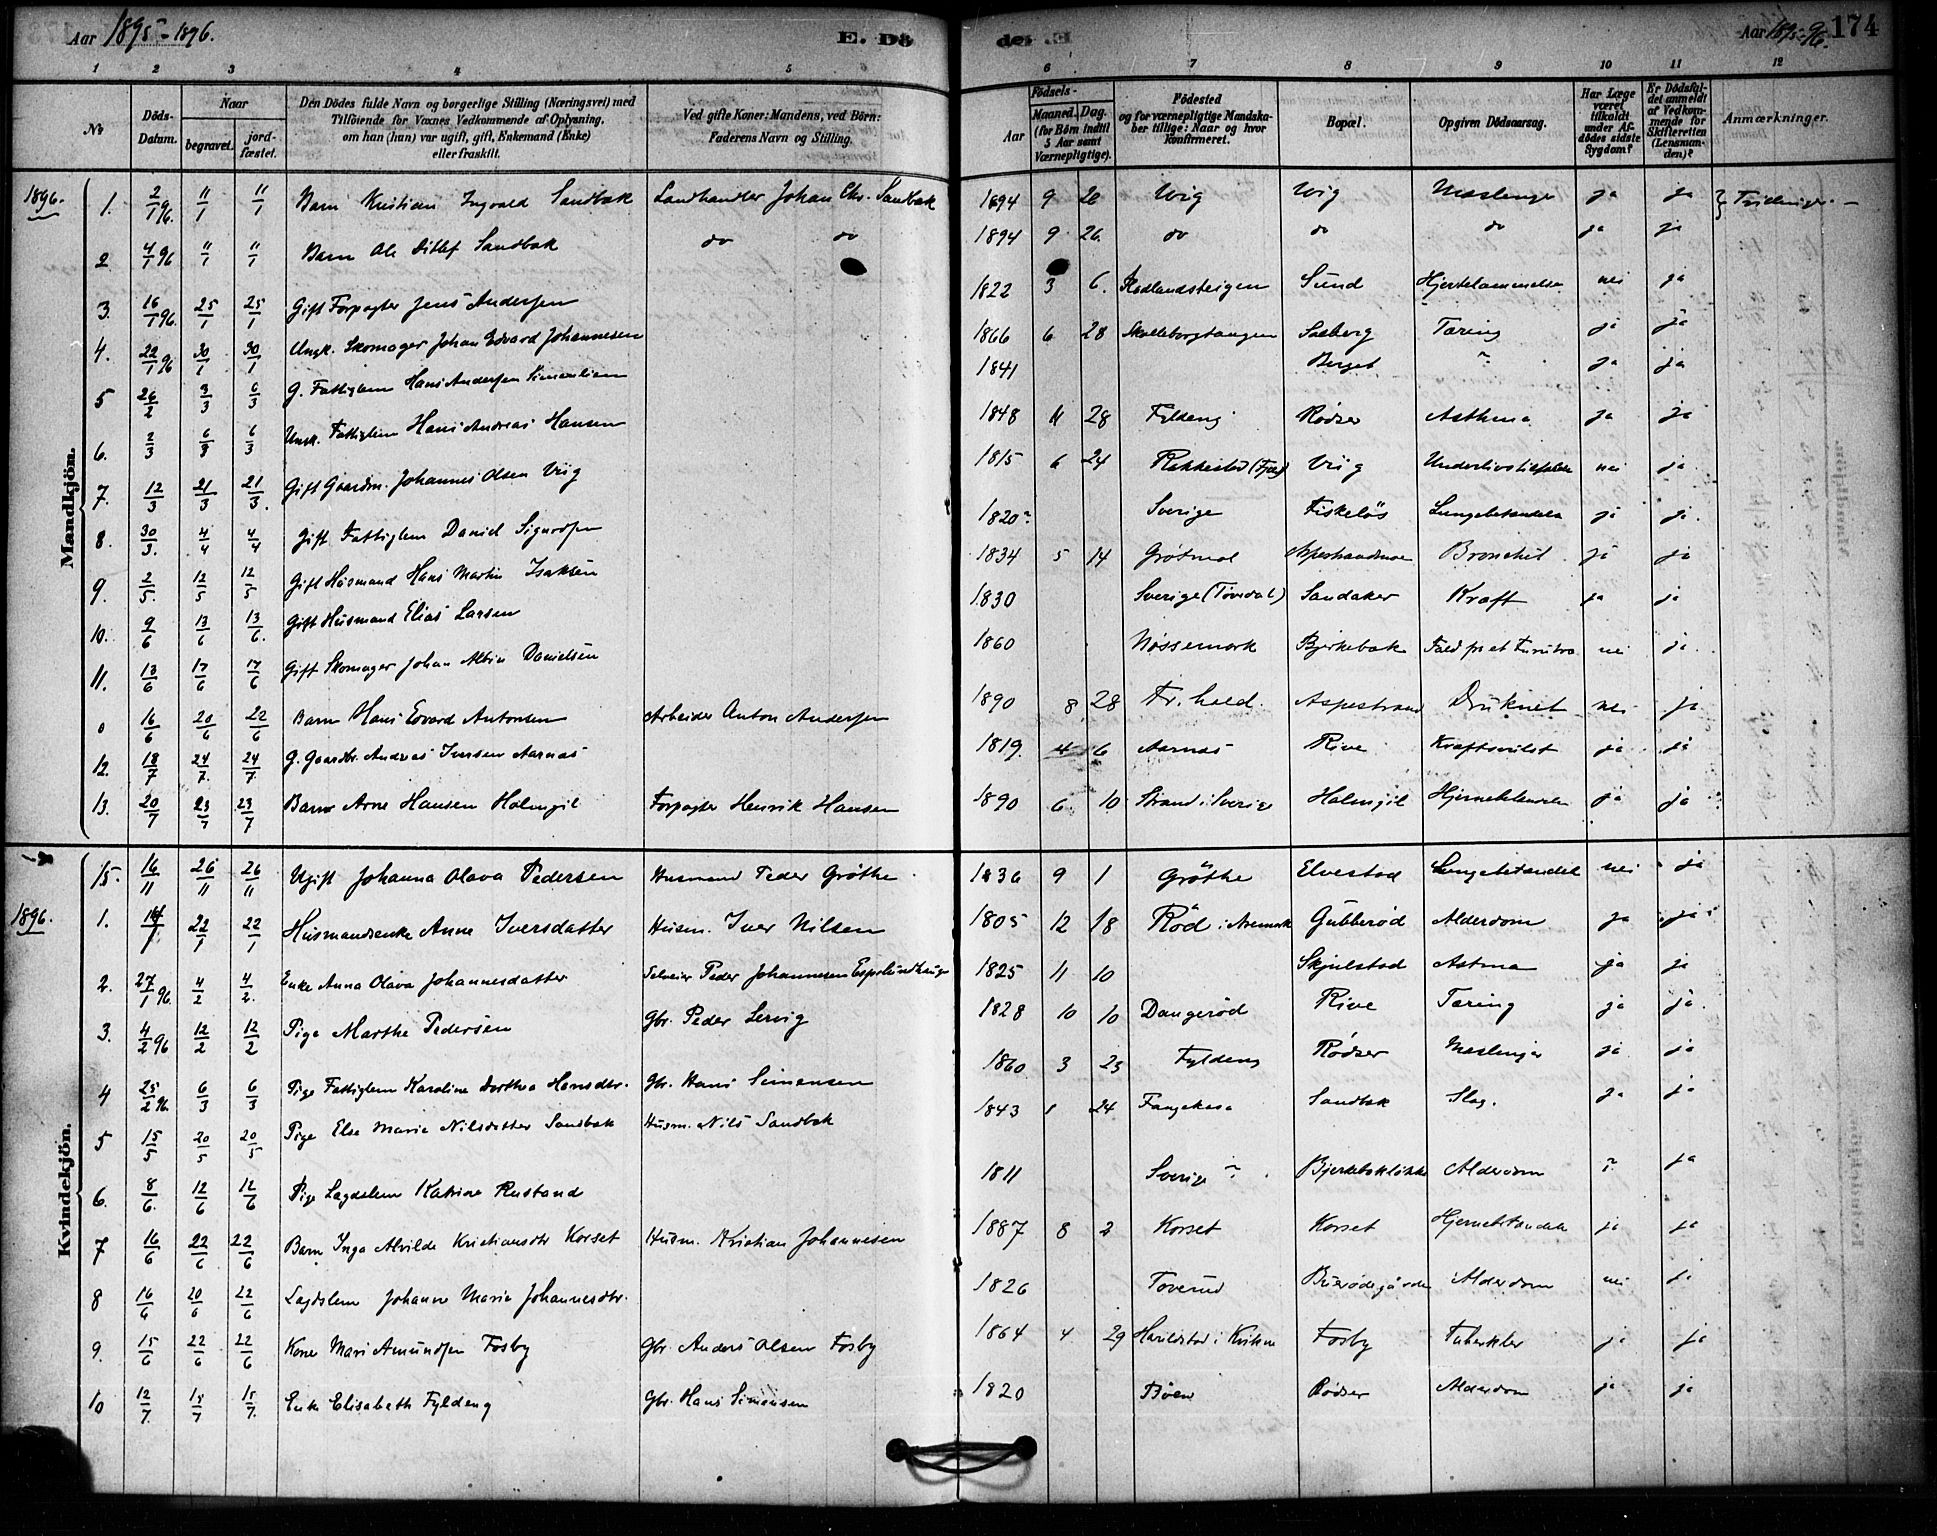 Aar 1895-1896. E. Dö de. E. Aar 1895-96. 174
1 2 3 4 5 6 6 7 8 9 10 11 12
No Döds-Datum. Naar begravet. jordfæstet. Den Dödes fulde Navn og borgerlige Stilling (Næringsvei) med Tilföiende for Voxnes Vedkommende af Oplysning, om han (hun) var ugift, gift, Enkemand (Enke) eller fraskilt. Ved gifte Koner: Mandens, ved Börn: Faderens Navn og Stilling. Födsels- Aar Maaned. Dag. (for Börn indtil 5 Aar samt Værnepligtige). Födested og for værnepligtige Mandskaber tillige: Naar og hvor konfirmeret. Bopæl. Opgiven Dödsaarsag. Har Læge været tilkaldt under Afdödes sidste Sygdom? Er Dödsfaldet anmeldt af Vedkommende for Skifteretten (Lensmanden)? Anmærkninger.
Mandkjön.
1896. 1. 2/1 96. 11/1 11/1 Barn Kristian Ingvald Sandbæk Landhandler Johan Chr. Sandbæk 1894 9 26 Viig Viig Mæslinger ja ja } Tvillinger.
2 4/1 96 11/1 11/1 Barn Ole Ditlef Sandbæk do do 1894 9 26. do do do ja ja
3. 16/1 96. 25/1 25/1 Gift Forpagter Jens Andersen 1822 3 6. Sund Hjertelammelse nei ja
4. 22/1 96 30/1 30/1 Ungk. Skomager Johan Edvard Johannesen 1866 6 28 Solberg Tæring ja ja
5 26/2 3/3 6/3 G. Fattiglem Hans Andersen Simenlien 1841 Berget ? ja ja
6. 2/3 6/3 6/3 Ungk. Fattiglem Hans Andreas Hansen 1848 11 28 Fyldeng Rødser Asthma ja ja
7. 12/3 21/3 21/3. Gift Gaardm. Johannes Olsen Viig 1815 6 24 Rakkestad Viig nei ja
8. 30/3. 4/4 4/4 Gift Fattiglem Daniel Sigurdsen 1820? Sverige Fiskeløs Lungebetændelse ja ja.
9. 2/5. 12/5 12/5 Gift Husmand Hans Martin Isaksen 1834 5 14 Bronchit ja ja
10. 9/6 13/6 13/6. Gift Husmand Elias Larsen 1830 Sverige (Tøvedal) Sandaker Kræft ja ja
11. 13/6 17/6 17/6 Gift Skomager Johan Albin Danielsen 1860 Nøssemark Bjerkebæk nei ja.
0 16/6 20/6 22/6 Barn Hans Edvard Antonsen Arbeider Anton Andersen 1890 8 28 Fr. hald. Aspestrand Druknet nei ja
12. 18/7 24/7. 24/7. G. Gaardbr. Andreas Iversen Aarnæs 1819. 4 6 Aarnæs Rive Kræftsvulst ja ja
13. 20/7 23/7 23/7 Barn Arne Hansen Holmgil Forpagter Henrik Hansen 1890 6. 10. Strand i Sverige Holmgil Hjernebetændelse ja ja
Kvindekjön.
15. 16/11 26/11 26/11 Ugift Johanna Olava Pedersen Husmand Peder Grøthe 1836 9 1 Grøthe Elvestad Lungebetændelse nei ja
1896. 1. 22/1 22/1 Husmandsenke Anne Iversdatter Husm. Iver Nilsen 1805 12 18 Rød i Aremark Gubberød Alderdom ja ja
2. 27/1 96. 4/2 4/2. Enke Anna Olava Johannesdatter Selveier Peder Johannesen Espelundhaugen 1825 11 10 Skjulstad Astma ja ja
3. 4/2 96 12/2 12/2 Pige Marthe Pedersen Gbr. Peder Lervig 1828 10 10 Dangerød Rive Tæring ja ja
4 25/2 96. 6/3 6/3 Pige Fattiglem Karoline Dorthea Hansdtr. Gbr. Hans Simensen 1860 3 23 Fyldeng Rødser Mæslinger ja ja
5 15/5 20/5 20/5 Pige Else Marie Nilsdatter Sandbæk Husm. Nils Sandbæk 1843 1 24 Sandbæk Slag. ja ja
6. 8/6. 12/6 12/6 Pige Lægdslem Katrine Rustand 1811 Sverige ? Bjerkebækløkke Alderdom ? ja
7 16/6 22/6 22/6 Barn Inga Alvilde Kristiansdtr Korset Husm. Kristian Johannesen 1887 8 2 Korset Korset Hjernebetændelse ja ja
8 16/6 20/6 22/6 Lægdslem Johanne Maria Johannesdtr. 1826 Toverud Alderdom nei ja
9. 15/6 22/6 22/6 Kone Mari Amundsen Fosby Gbr. Anders Olsen Fosby 1864 4 29 Fosby Tuberkler ja ja
10 12/7. 15/7 15/7. Enke Elisabeth Fyldeng Gbr. Hans Simensen 1820 Bøen Rødser Alderdom ja ja